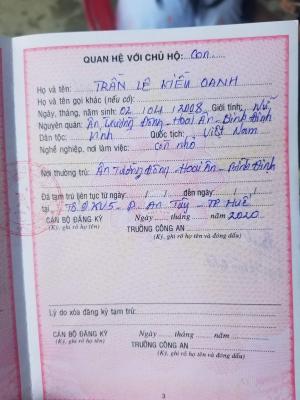 QUAN HỆ VỚI CHỦ HỘ: Con
Họ và tên: TRẦN LÊ KIỀU OANH
Họ và tên gọi khác (nếu có):
Ngày, tháng, năm sinh: 02/04/2008 Giới tính: Nữ
Nguyên quán: Ân Tường Đông - Hoài Ân - Bình Định
Dân tộc: Kinh Quốc tịch: Việt Nam
Nghề nghiệp, nơi làm việc: còn nhỏ
Nơi thường trú: Ân Tường Đông - Hoài Ân - Bình Định
Đã tạm trú liên tục từ ngày: / / đến ngày: / /
tại Tổ 9 KV5 - P. An Tây - TP Huế
CÁN BỘ ĐĂNG KÝ Ngày tháng năm 2020
(Ký, ghi rõ họ tên) TRƯỞNG CÔNG AN
(Ký, ghi rõ họ tên và đóng dấu)
Lý do xóa đăng ký tạm trú:
CÁN BỘ ĐĂNG KÝ Ngày tháng năm
(Ký, ghi rõ họ tên) TRƯỞNG CÔNG AN
(Ký, ghi rõ họ tên và đóng dấu)
3